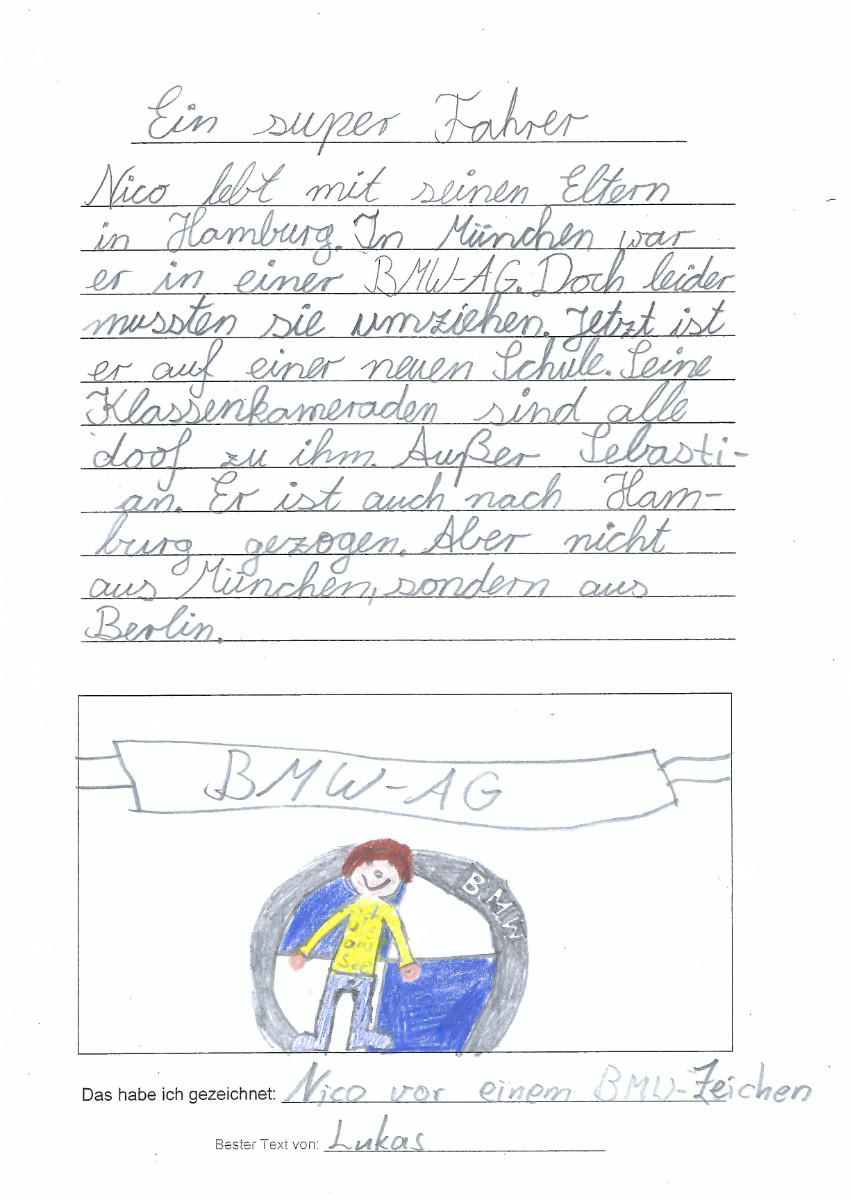 Ein super Fahrer
Nico lebt mit seinen Eltern
in Hamburg. In München war
er in einer BMW-AG. Doch leider
mussten sie umziehen. Jetzt ist
er auf einer neuen Schule. Seine
Klassenkameraden sind alle
doof zu ihm. Außer Sebasti-
an. Er ist auch nach Ham-
burg gezogen. Aber nicht
aus München, sondern aus
Berlin.
BMW-AG
BMW
Das habe ich gezeichnet: Nico vor einem BMW-Zeichen
Bester Text von: Lukas